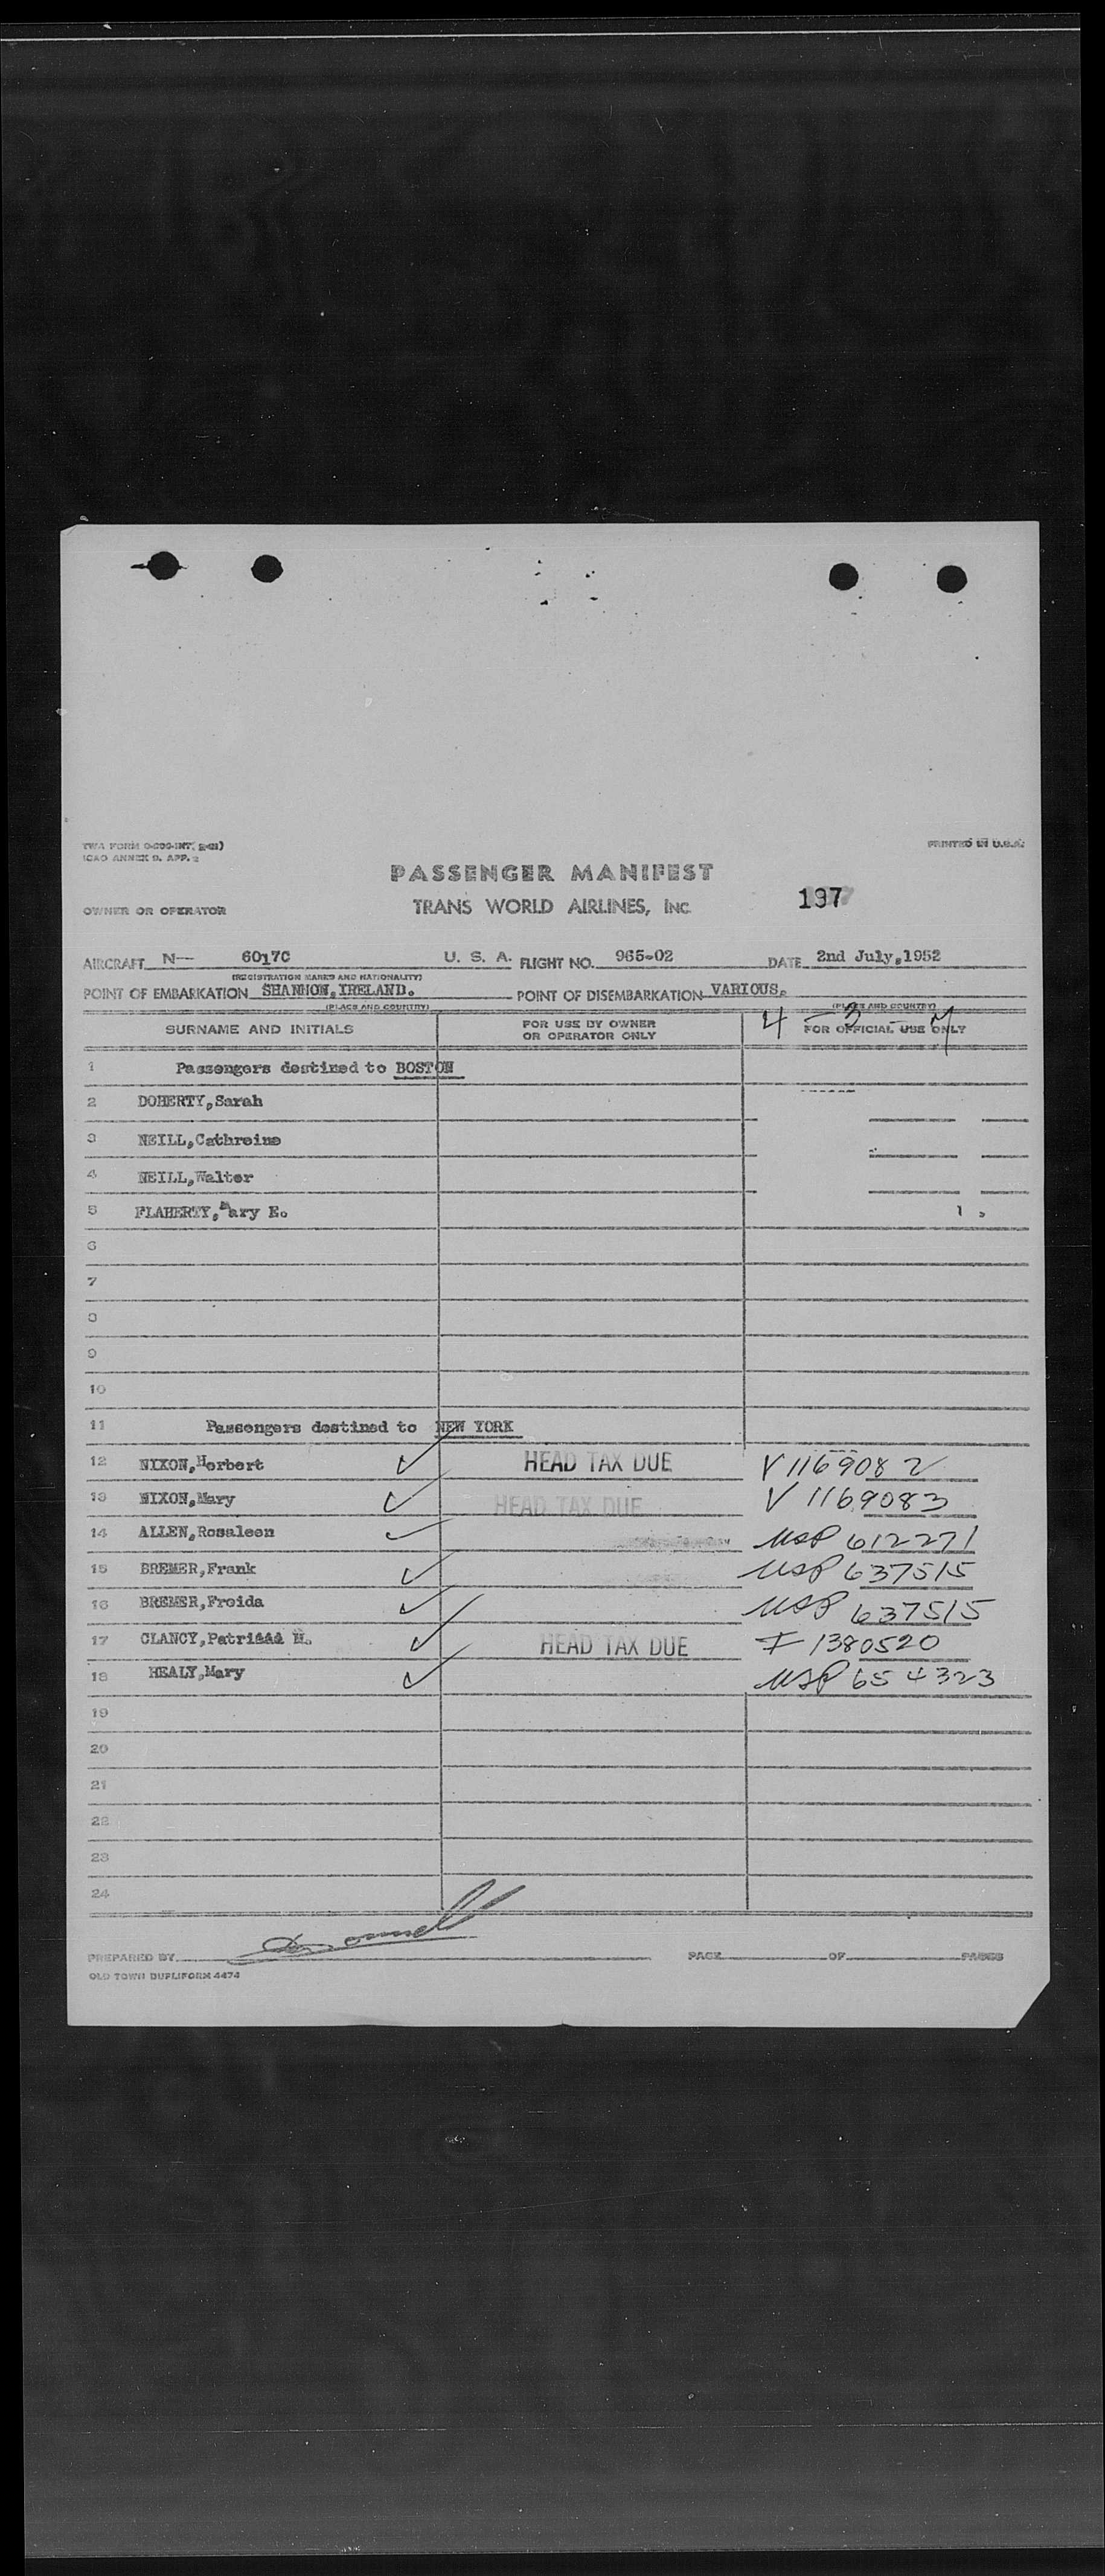 TWA FORM
ICAO ANNEX 9. APP. 2
PRINTED IN U.S.A.
PASSENGER MANIFEST
OWNER OR OPERATOR TRANS WORLD AIRLINES, INC. 197
AIRCRAFT N— 6017C U. S. A. FLIGHT NO. 965-02 DATE 2nd July,1952
(REGISTRATION MARKS AND NATIONALITY)
POINT OF EMBARKATION SHANNON,IRELAND. POINT OF DISEMBARKATION VARIOUS.
(PLACE AND COUNTRY) (PLACE AND COUNTRY)
4 – 3 – 7
SURNAME AND INITIALS FOR USE BY OWNER OR OPERATOR ONLY FOR OFFICIAL USE ONLY
1 Passengers destined to BOSTON
2 DOHERTY,Sarah
3 NEILL,Cathreine
4 NEILL,Walter
5 FLAHERTY,Mary E.
6
7
8
9
10
11 Passengers destined to NEW YORK
12 NIXON,Herbert ✓ HEAD TAX DUE V 1169082
13 NIXON,Mary ✓ HEAD TAX DUE V 1169083
14 ALLEN,Rosaleen ✓ USP 612271
15 BREMER,Frank ✓ USP 637515
16 BREMER,Froida ✓ USP 637515
17 CLANCY, ✓ HEAD TAX DUE I 1380520
18 HEALY,Mary ✓ USP 654323
19
20
21
22
23
24
PREPARED BY PAGE OF PAGES
OLD TOWN DUPLIFORM 4474